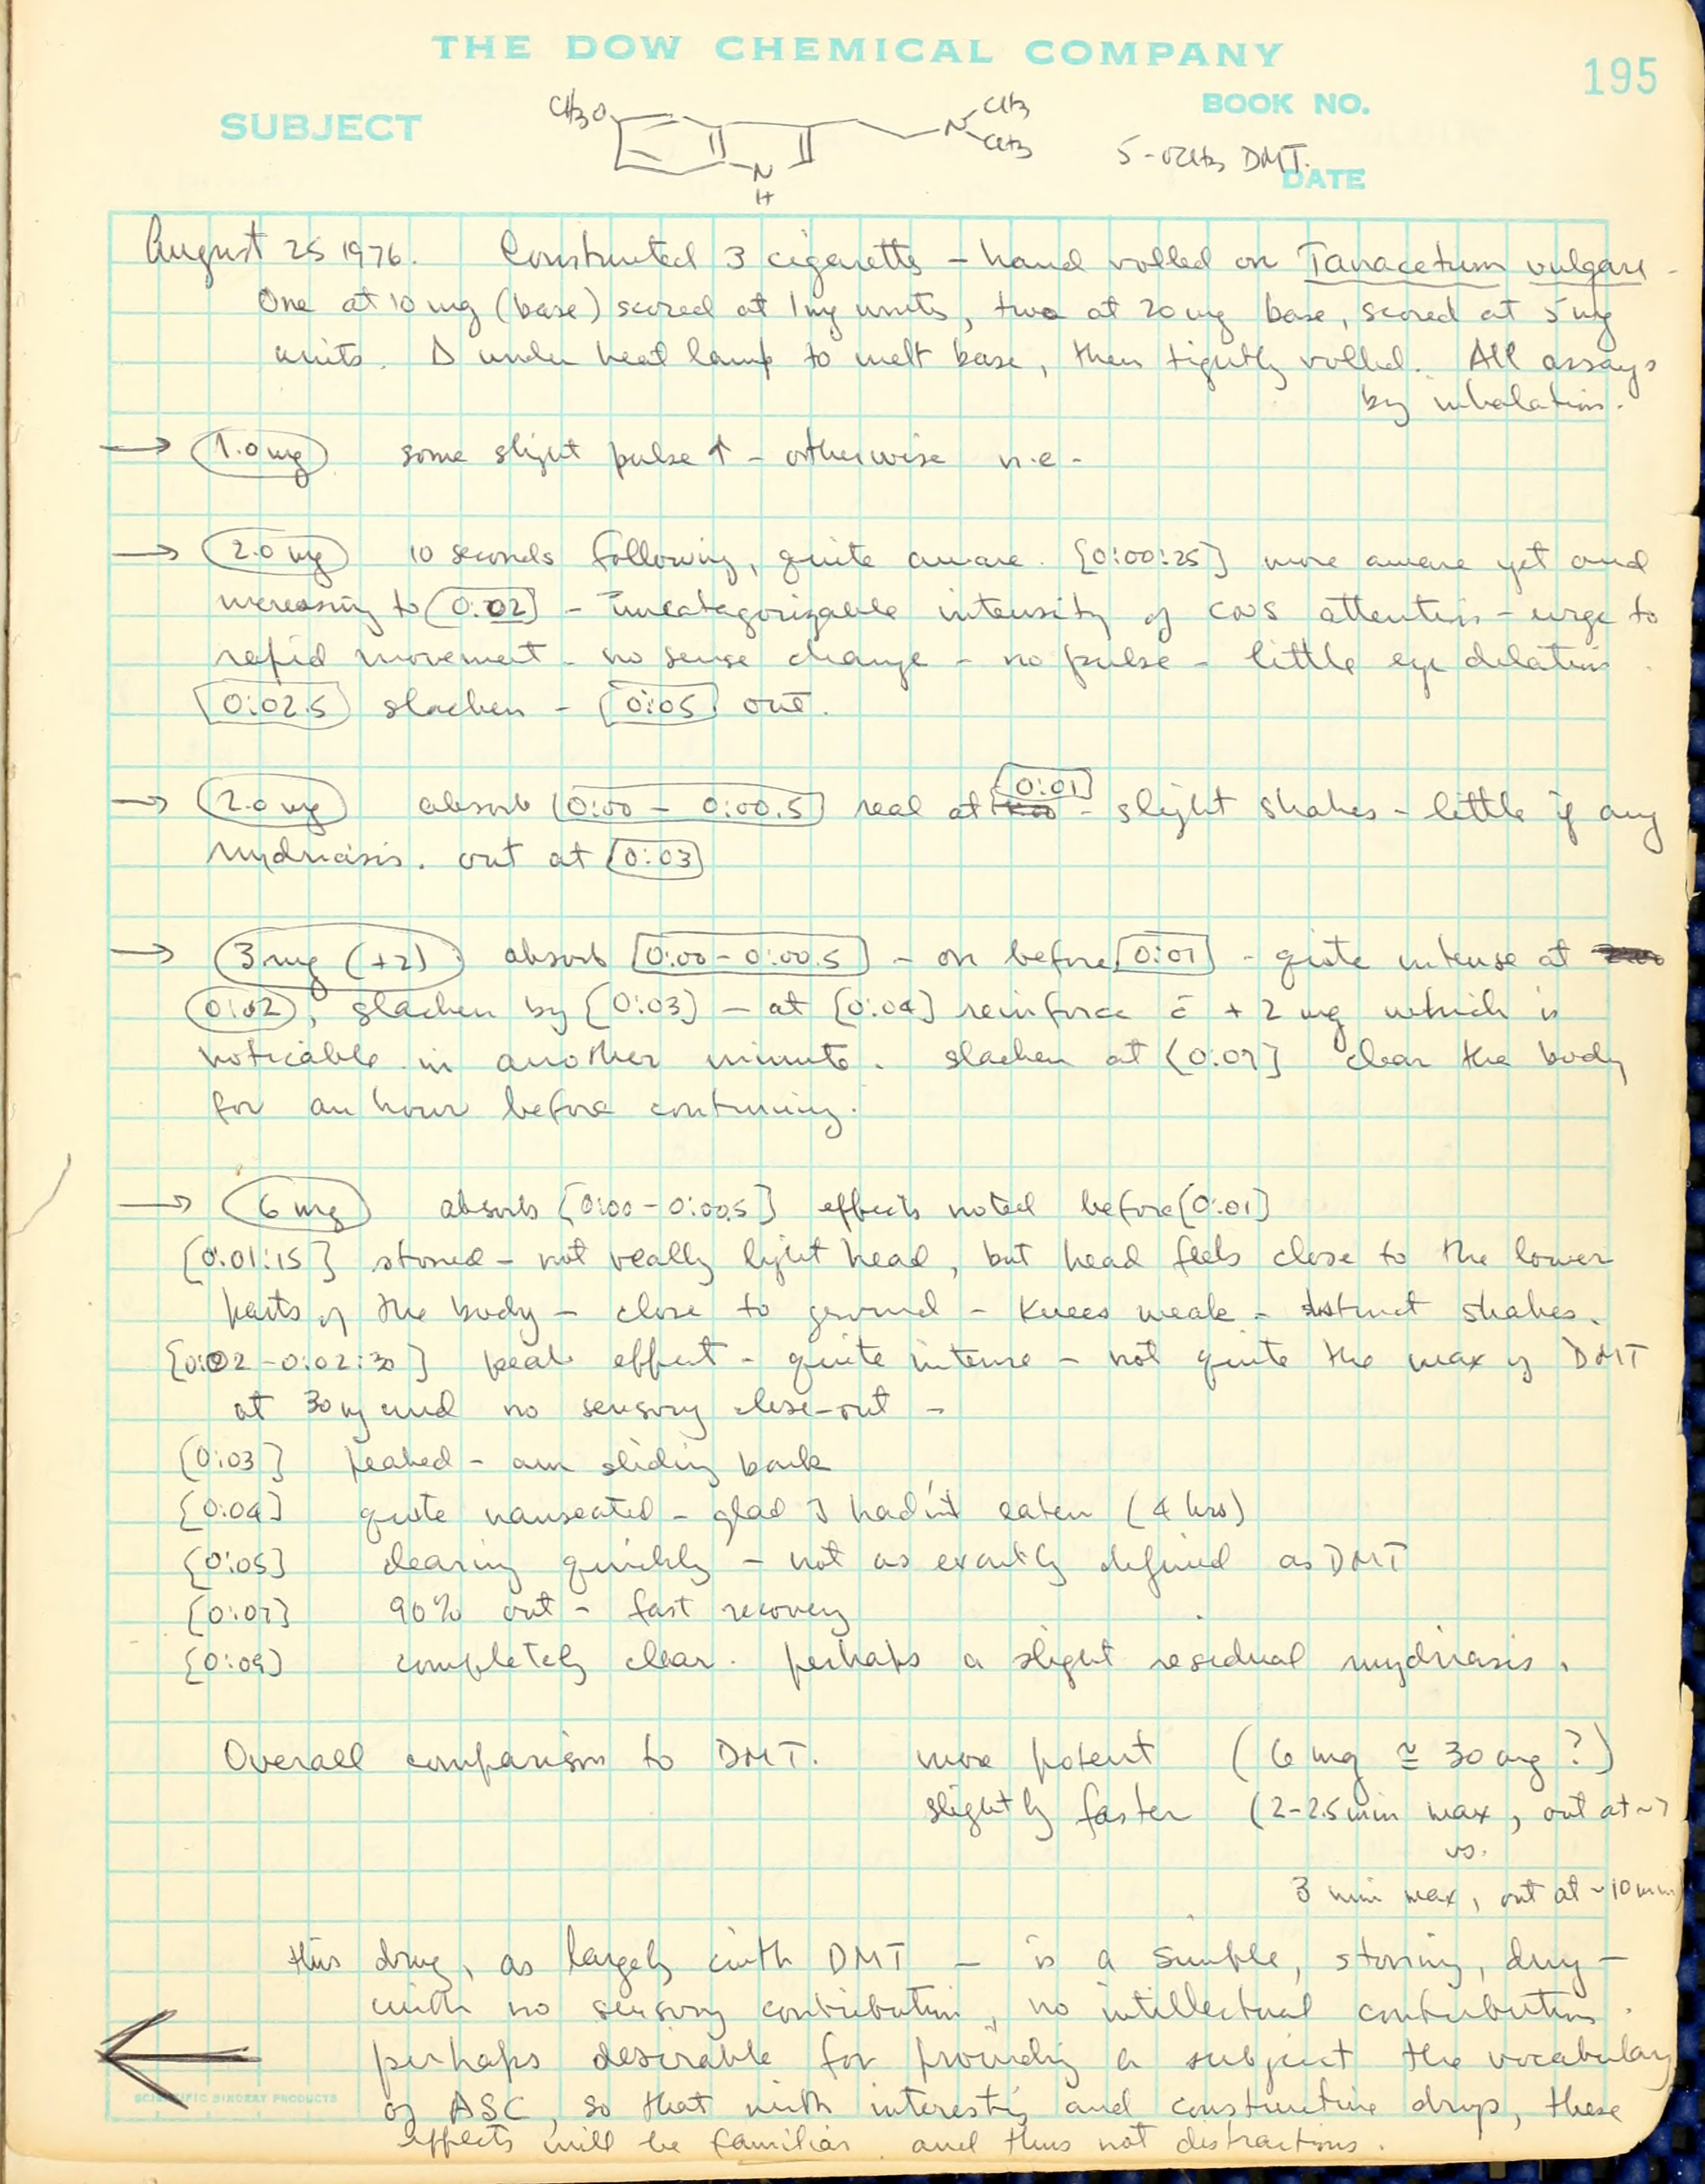 THE DOW CHEMICAL COMPANY
195
SUBJECT
BOOK NO.
CH3O
N
H
N
CH3
CH3
5-OCH3 DMT.
DATE
August 25 1976. Constructed 3 cigarettes - hand rolled on Tanacetum vulgare -
One at 10 mg (base) scored at 1mg units, two at 20 mg base, scored at 5 mg
units. Δ under heat lamp to melt base, then tightly rolled. All assays
by inhalation.
→ 1.0 mg some slight pulse ↑ - otherwise n.e.
→ 2.0 mg 10 seconds following, quite aware. [0:00:25] more aware yet and
increasing to [0:02] - uncategorizable intensity of CNS attention - urge to
rapid movement - no sense change - no pulse - little eye dilation.
[0:02.5] slacken - [0:05] out.
→ 2.0 mg absorb [0:00 - 0:00.5] real at [0:01] - slight shakes - little if any
mydriasis. out at [0:03]
→ 3 mg (+2) absorb [0:00 - 0:00.5] - on before [0:01] - quite intense at
0:02, slacken by [0:03] - at [0:04] reinforce c̄ + 2 mg which is
noticable in another minute. slacken at [0:07] clear the body
for an hour before continuing.
→ 6 mg absorb [0:00 - 0:00.5] effects noted before [0:01]
[0:01:15] stoned - not really light head, but head feels close to the lower
parts of the body - close to ground - knees weak - distinct shakes.
[0:02 - 0:02:30] peak effect - quite intense - not quite the max of DMT
at 30 mg and no sensory close-out -
[0:03] peaked - am sliding back
[0:04] quite nauseated - glad I hadn't eaten (4 hrs)
[0:05] clearing quickly - not as exactly defined as DMT
[0:07] 90% out - fast recovery
[0:09] completely clear. perhaps a slight residual mydriasis.
Overall comparison to DMT. more potent (6 mg ≅ 30 mg ?)
slightly faster (2-2.5 min max, out at ~7
vs.
3 min max, out at ~10 min
this drug, as largely with DMT - is a simple, stoning, drug -
with no sensory contribution, no intellectual contribution.
perhaps desirable for providing a subject the vocabulary
SCIENTIFIC BINDERY PRODUCTS
of ASC, so that with interesting and constructive drugs, these
effects will be familiar and thus not distractions.